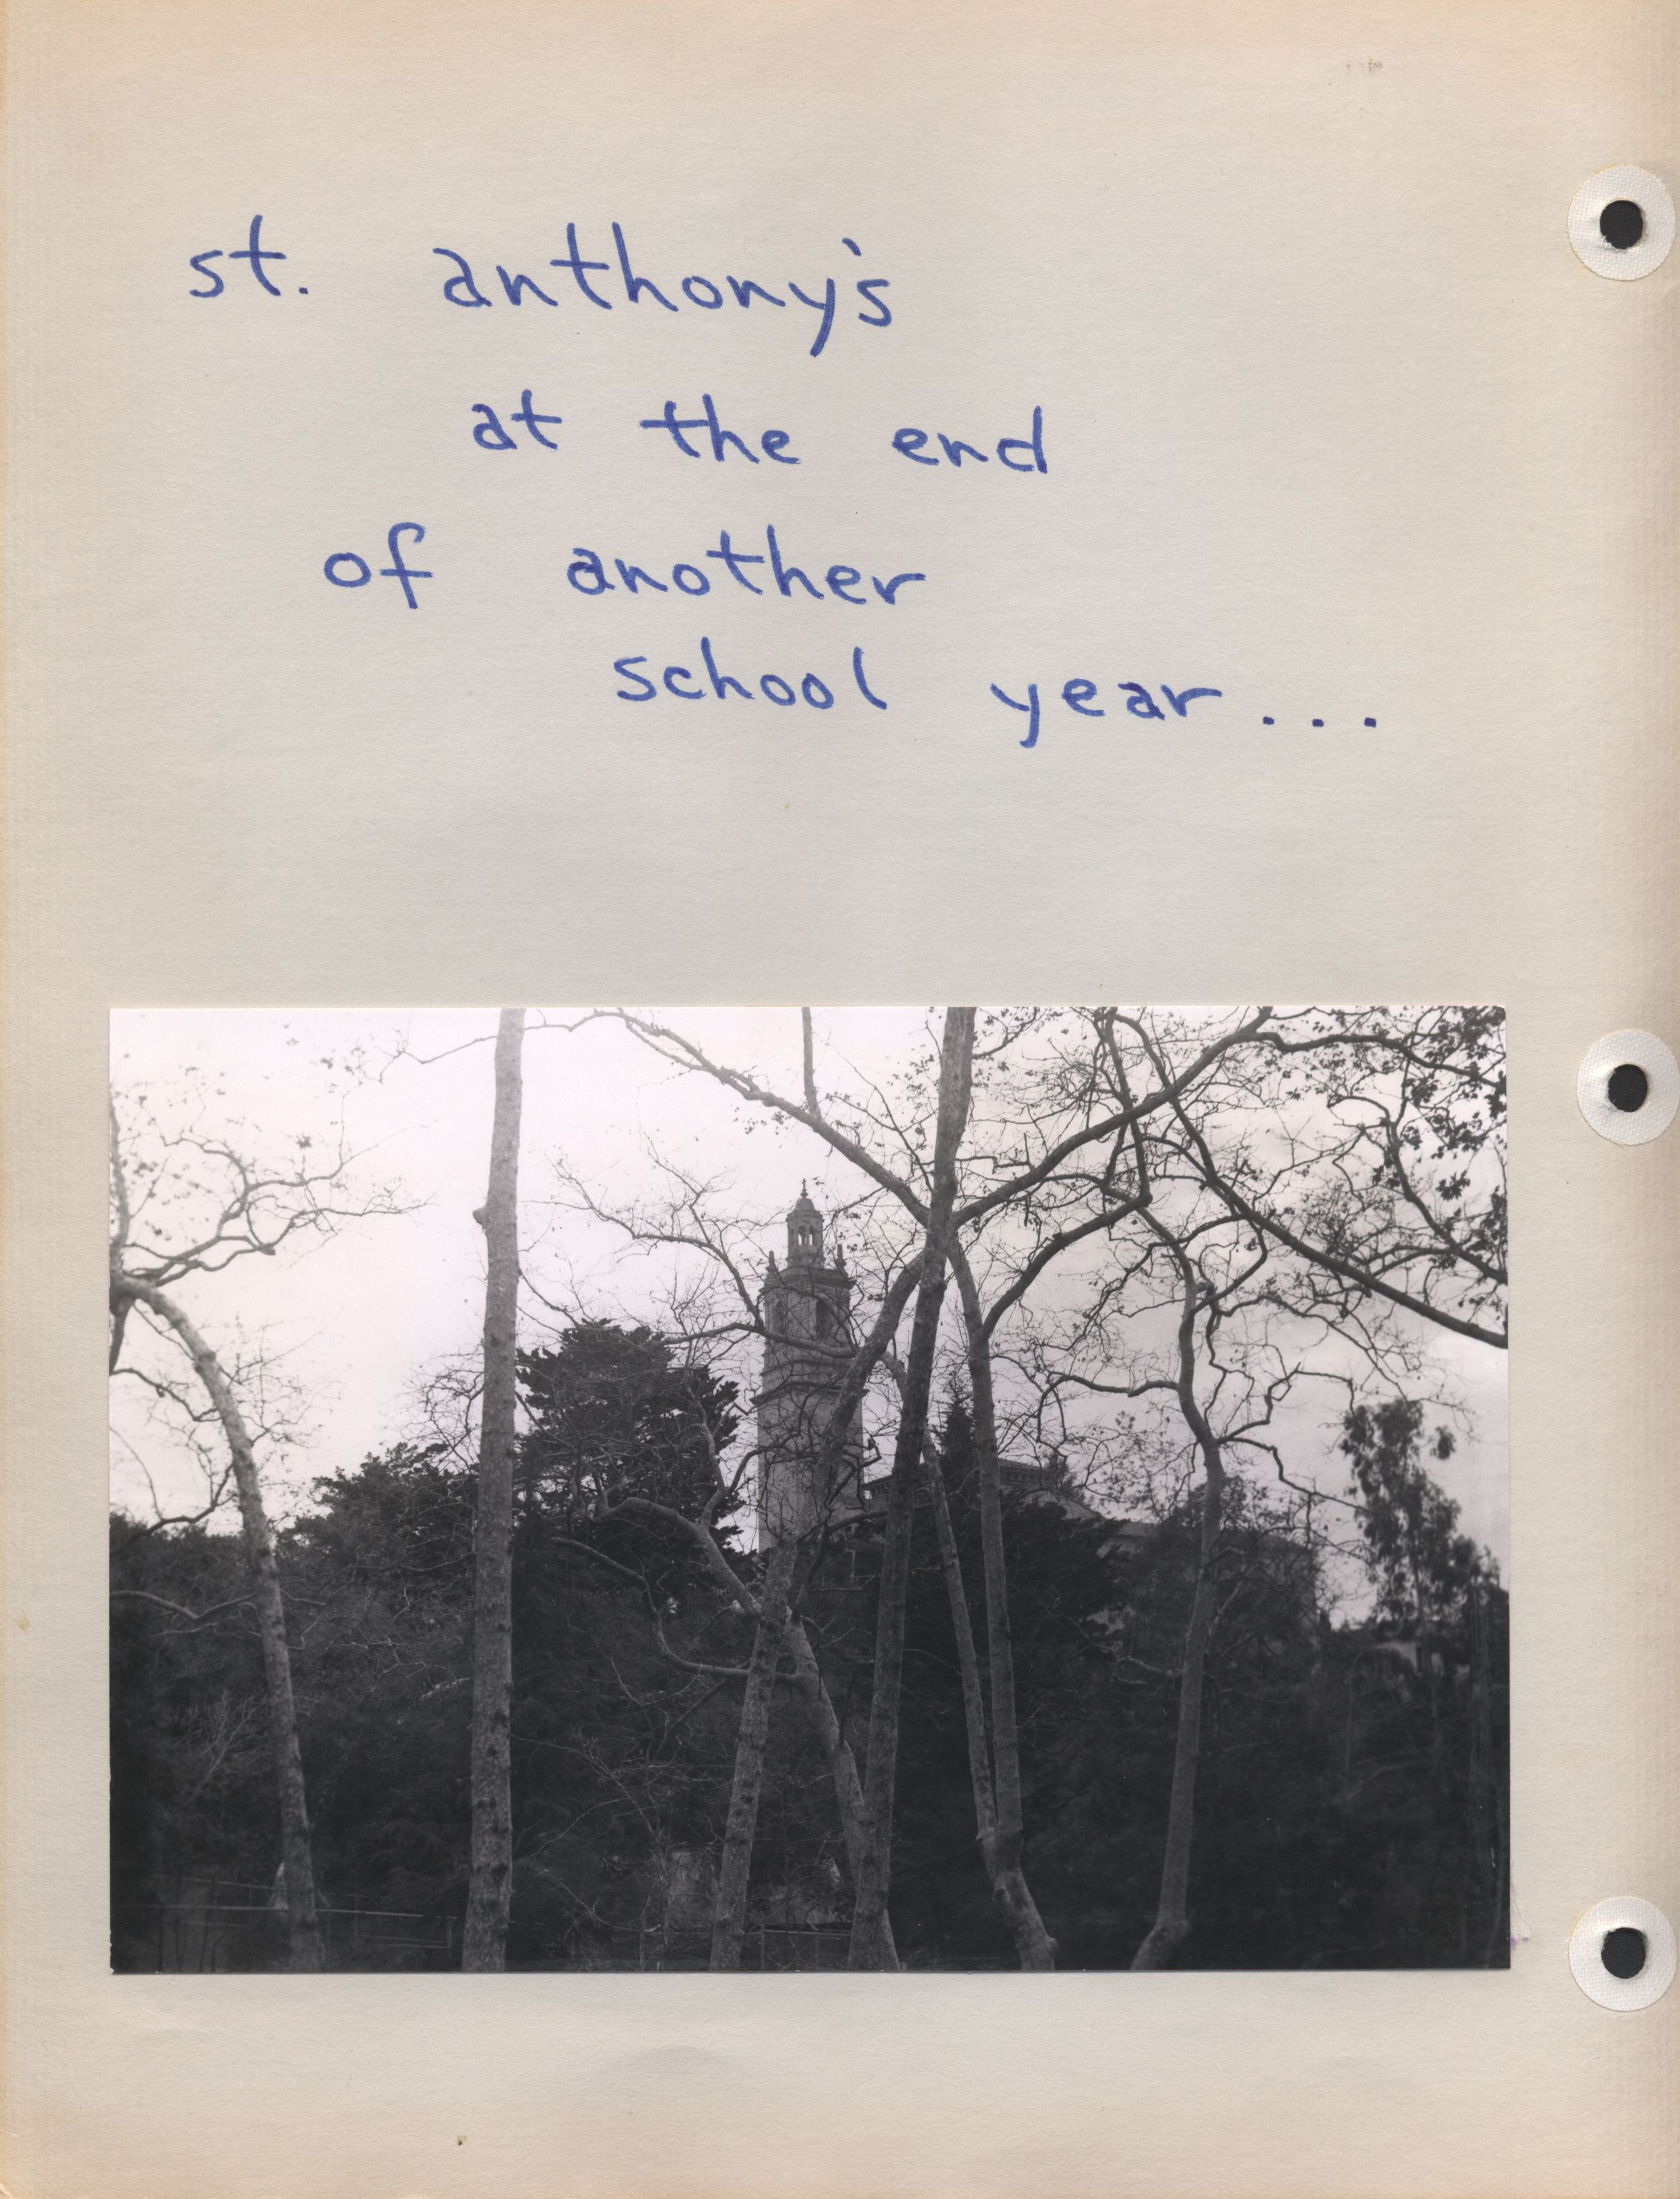 st. anthony's
at the end
of another
school year...